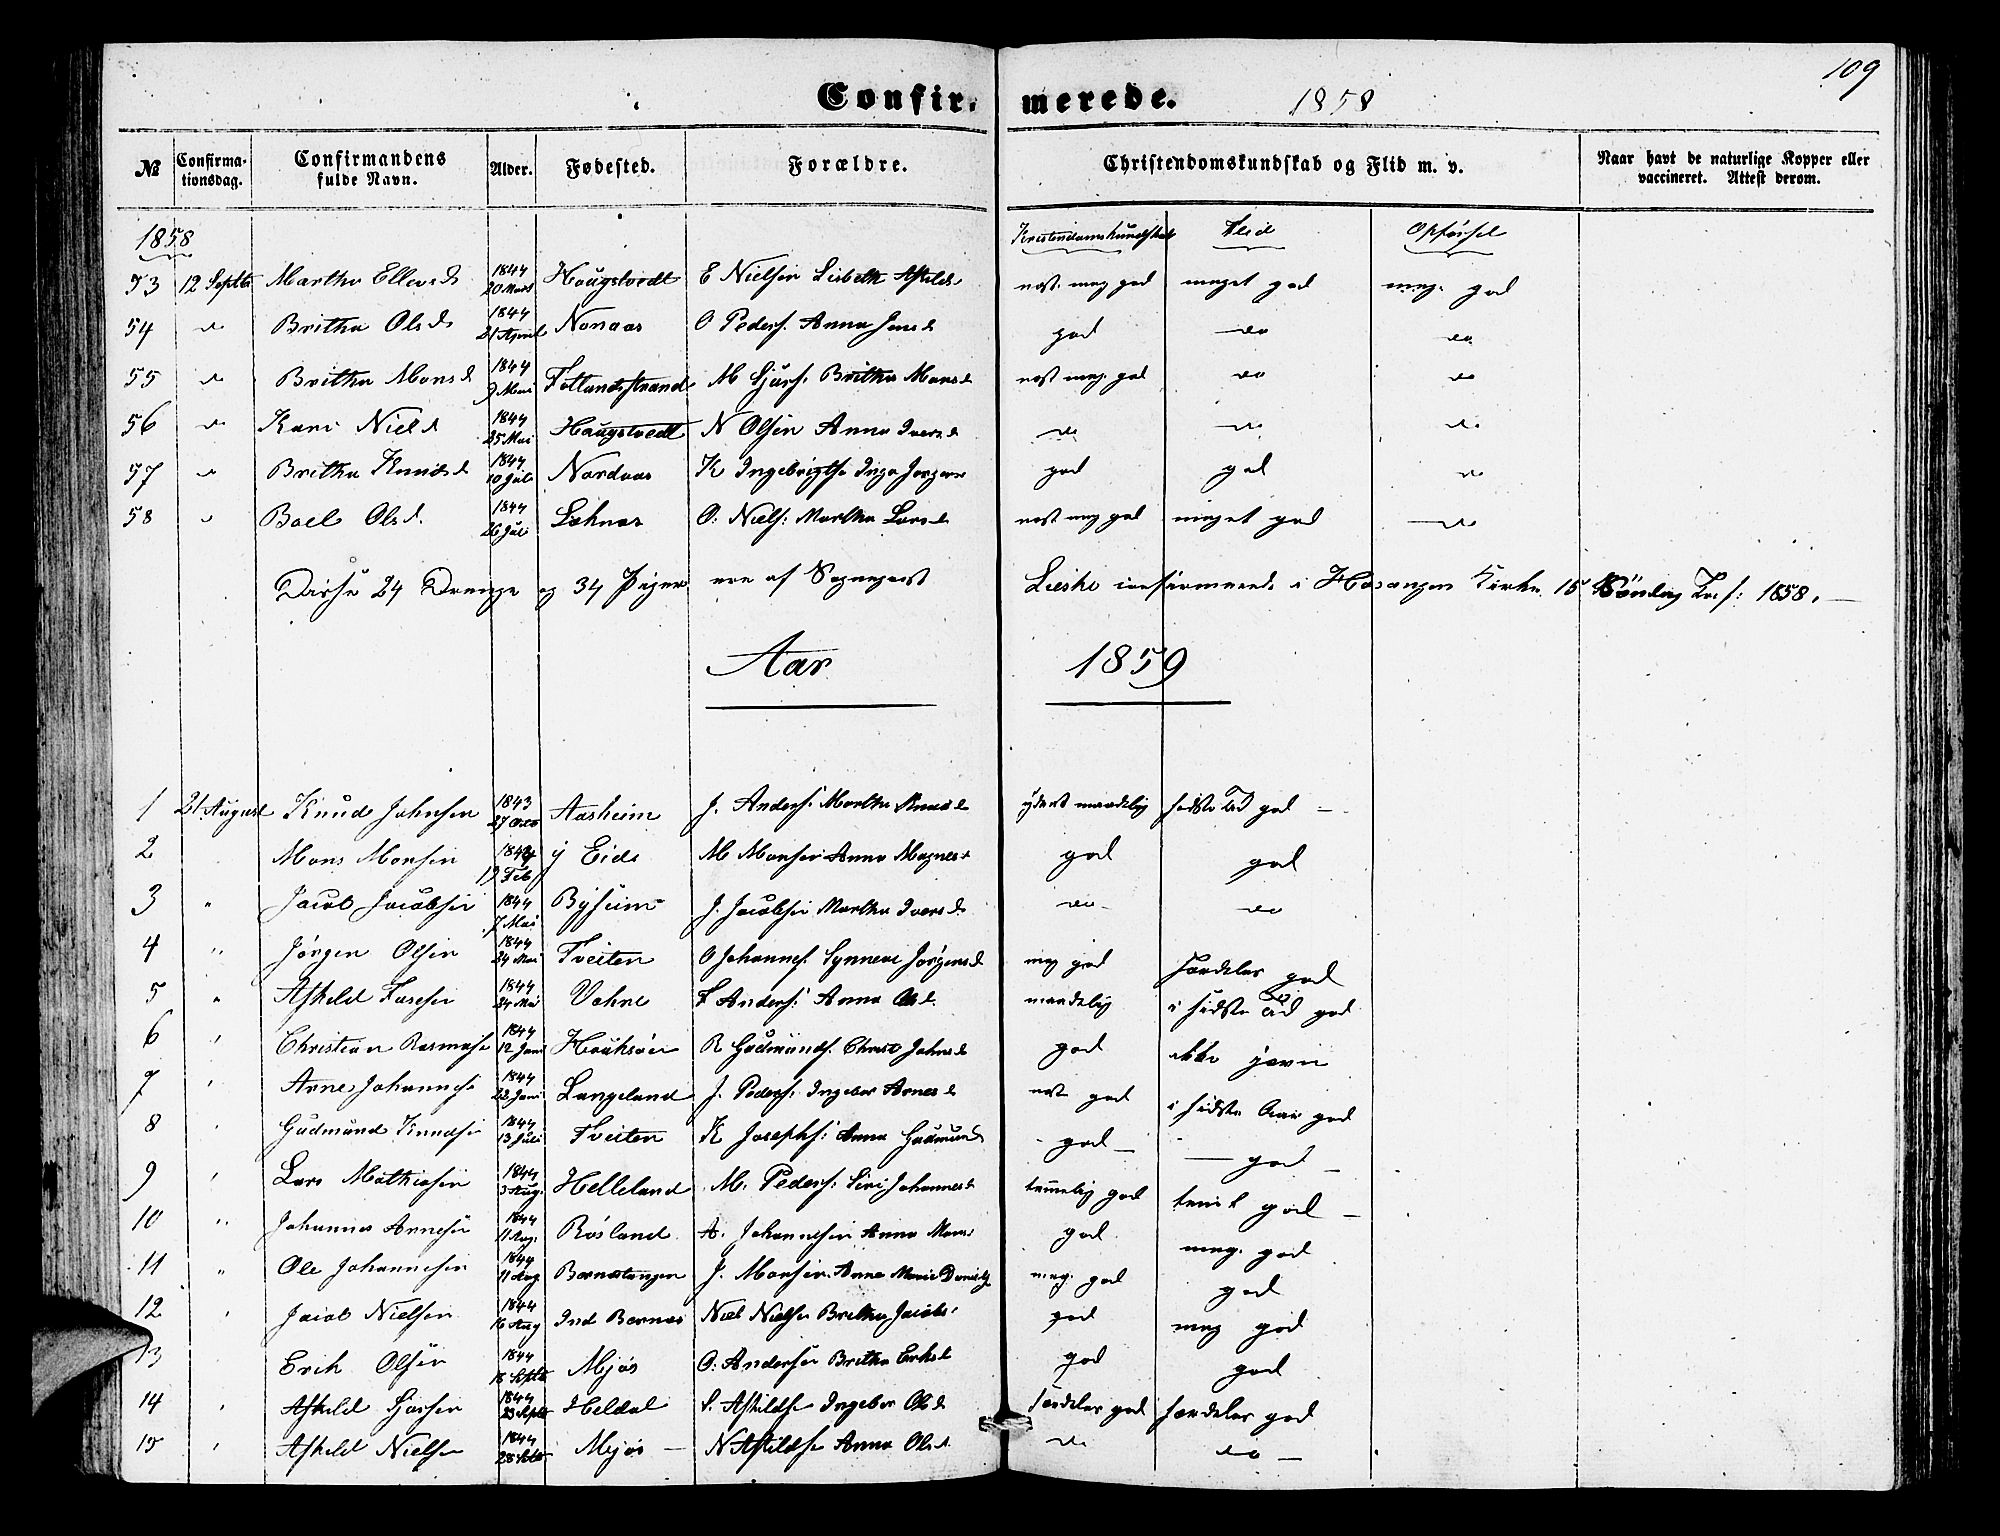 109
Confirmerede. 1858
№ Confirmationsdag. Confirmandens fulde Navn. Alder. Fødested. Forældre. Christendomskundskab og Flid m. v. Naar havt de naturlige Kopper eller vaccineret. Attest derom.
1858 Kristendomskundskab Flid Opførsel
53 12 Septb Martha Ellevsd 1844 20 Mars Haugstvedt E Nielsen Lisbeth Askilds. næst. meg god meget god meg. god
54 do Britha Olsd 1844 21 April Nonaas O Peders. Anna Jansd god do do
55 do Britha Monsd 1844 9 Mai Fotlandsstrand M Sjurs. Britha Monsd næst meg. god do do
56 do Kari Nielsd 1844 25 Mai Haugstvedt N Olsen Anna Iversd do do do
57 do Britha Knudsd 1844 10 Juli Nordaas K Ingebrigts. Inga Jørgens god god do
58 do Boel Olsd. 1844 26 Juli Løknæs O: Niels: Martha Larsd næst meg god meget god do
Disse 24 Drenge og 34 Piger ere af Sogneprest Lieske confirmerede i Hosanger Kirke 15 Söndag Tref: 1858.
Aar 1859
1 21 August Knud Johnsen 1843 27 Aasheim J. Anders: Martha Knudsd yderst maadelig sidste Tid god
2 Mons Monsen 1844 19 Feb y Eide M Monsen Anna Magnes. god god
3 " Jacob Jacobsen 1844 7 Mai Bysheim J. Jacobsen Martha Iversd do do
4 " Jørgen Olsen 1844 24 Mai Tveiten O Johannes. Synneve Jørgensd meg god særdeles god
5 " Askild 1844 24 Mai Vohne Anders: Anna Olsd. maadelig i sidste Tid god
6 " Christian Rasmuss. 1844 12 Juni Houksøen R Gudmunds. Christ Johnsd god ikke jævn
7 " Arne Johanness 1844 22 Juni Langeland J. Peders: Ingebor Arnesd næst god i sidste Aar god
8 " Gudmund Knudsen 1844 13 Juli Tveiten K Josephs: Anna Gudmunds god god
9 " Lars Mathiasen 1844 3 Aug. Helleland M. Peders: Siri Johannesd temmelig god god
10 " Johannes Arnesen 1844 11 Aug. Røsland A. Johannesen Anna Mons: god meg. god
11 " Ole Johannesen 1844 11 Aug Bernestangen J. Monsen. Anne Marie Danielsd meg. god god
12 " Jacob Nielsen 1844 16 Aug Ind Bernes Niel Nielsen Britha Jacobs. god meg god
13 Erik Olsen 1844 18 Septb Mjøs O: Andersen Britha Eriksd god god
14 " Askild Sjursen 1844 23 Septb Heldal S. Askildsen Ingebor Olsd særdeles god særdeles god
15 " Askild Nielsen 1844 28 Mjøs N Askildsen Anna Olsd. do do